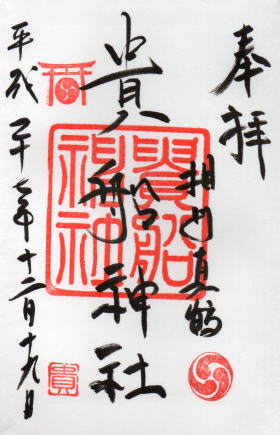 奉拝
相州真鶴
貴船神社
貴船神社
平成二十七年十二月十九日
貴